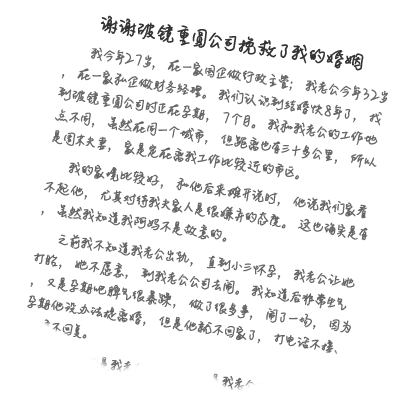 谢谢破镜重圆公司挽救了我的婚姻
我今年27岁，在一家国企做行政主管；我老公今年32岁
，在一家私企做财务经理。我们认识到结婚快8年了，找
到破镜重圆公司时正在孕期，7个月。我和我老公的工作地
点不同，虽然在同一个城市，但距离也有三十多公里，所以
是周末夫妻，家是安在离我工作比较近的市区。
我的家境比较好，和他后来摊开说时，他说我们家看
不起他，尤其对待我夫家人是很嫌弃的态度。这也确实是有
，虽然我知道我阿妈不是故意的。
之前我不知道我老公出轨，直到小三怀孕，我老公让她
打胎，她不愿意，到我老公公司去闹。我知道后非常生气
，又是孕期吧脾气很暴躁，做了很多事，闹了一场，因为
孕期他没办法提离婚，但是他就不回家了，打电话不接、
不回复。
是我老
是我老公